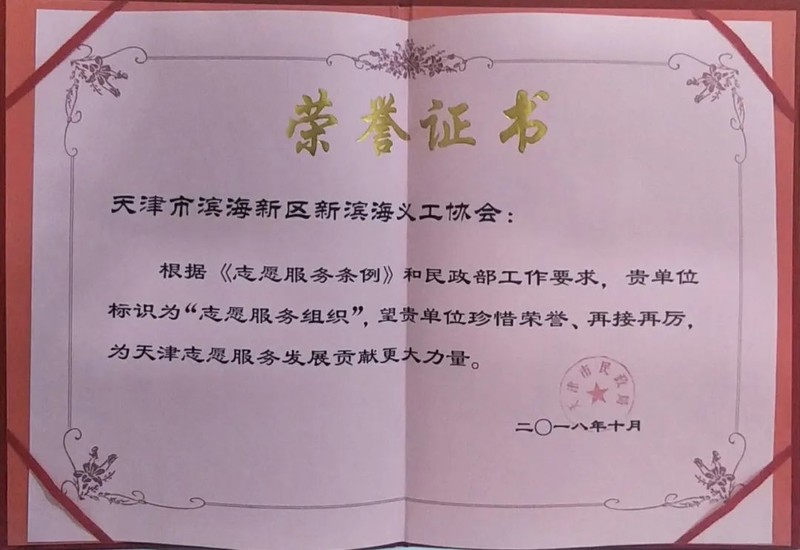 荣誉证书
天津市滨海新区新滨海义工协会：
根据《志愿服务条例》和民政部工作要求，贵单位
标识为“志愿服务组织”，望贵单位珍惜荣誉、再接再厉，
为天津志愿服务发展贡献更大力量。
天津市民政局
二〇一八年十月